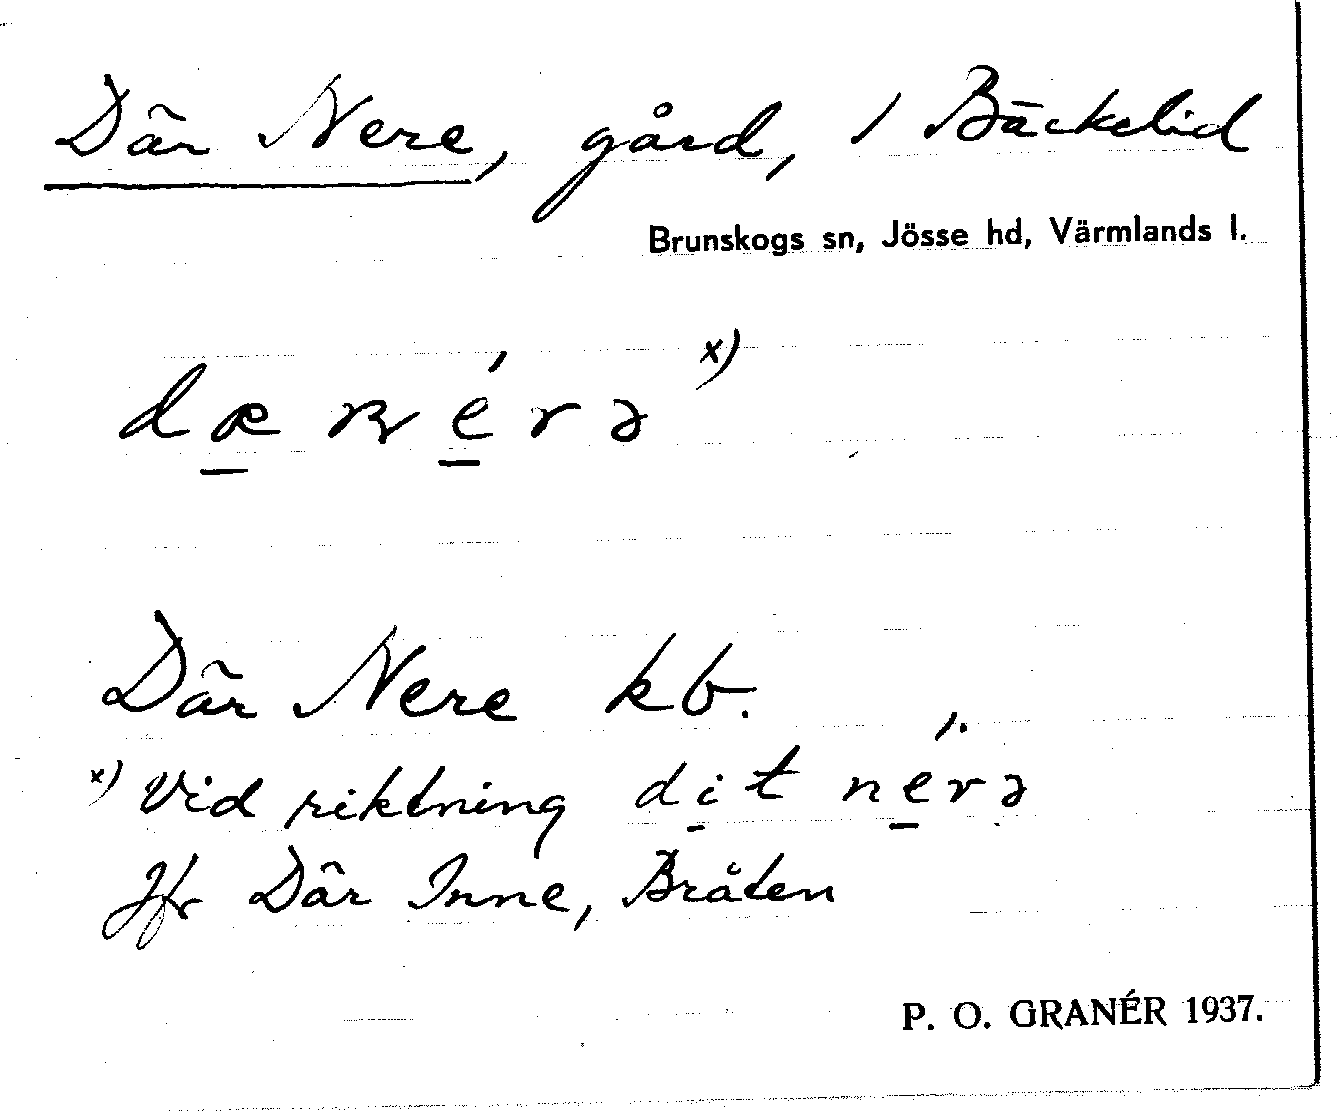 Där Nere, gård, 1 Bäckelid
Brunskogs sn, Jösse hd, Värmlands l.
dæ ɳérə x)
Där Nere kb.
x) Vid riktning dit nérə
Jfr Där Inne, Bråten
P. O. GRANÉR 1937.